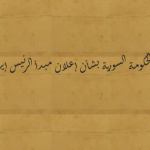 لحكومة السورية بشأن اعلان مبدأ الرئيس اير